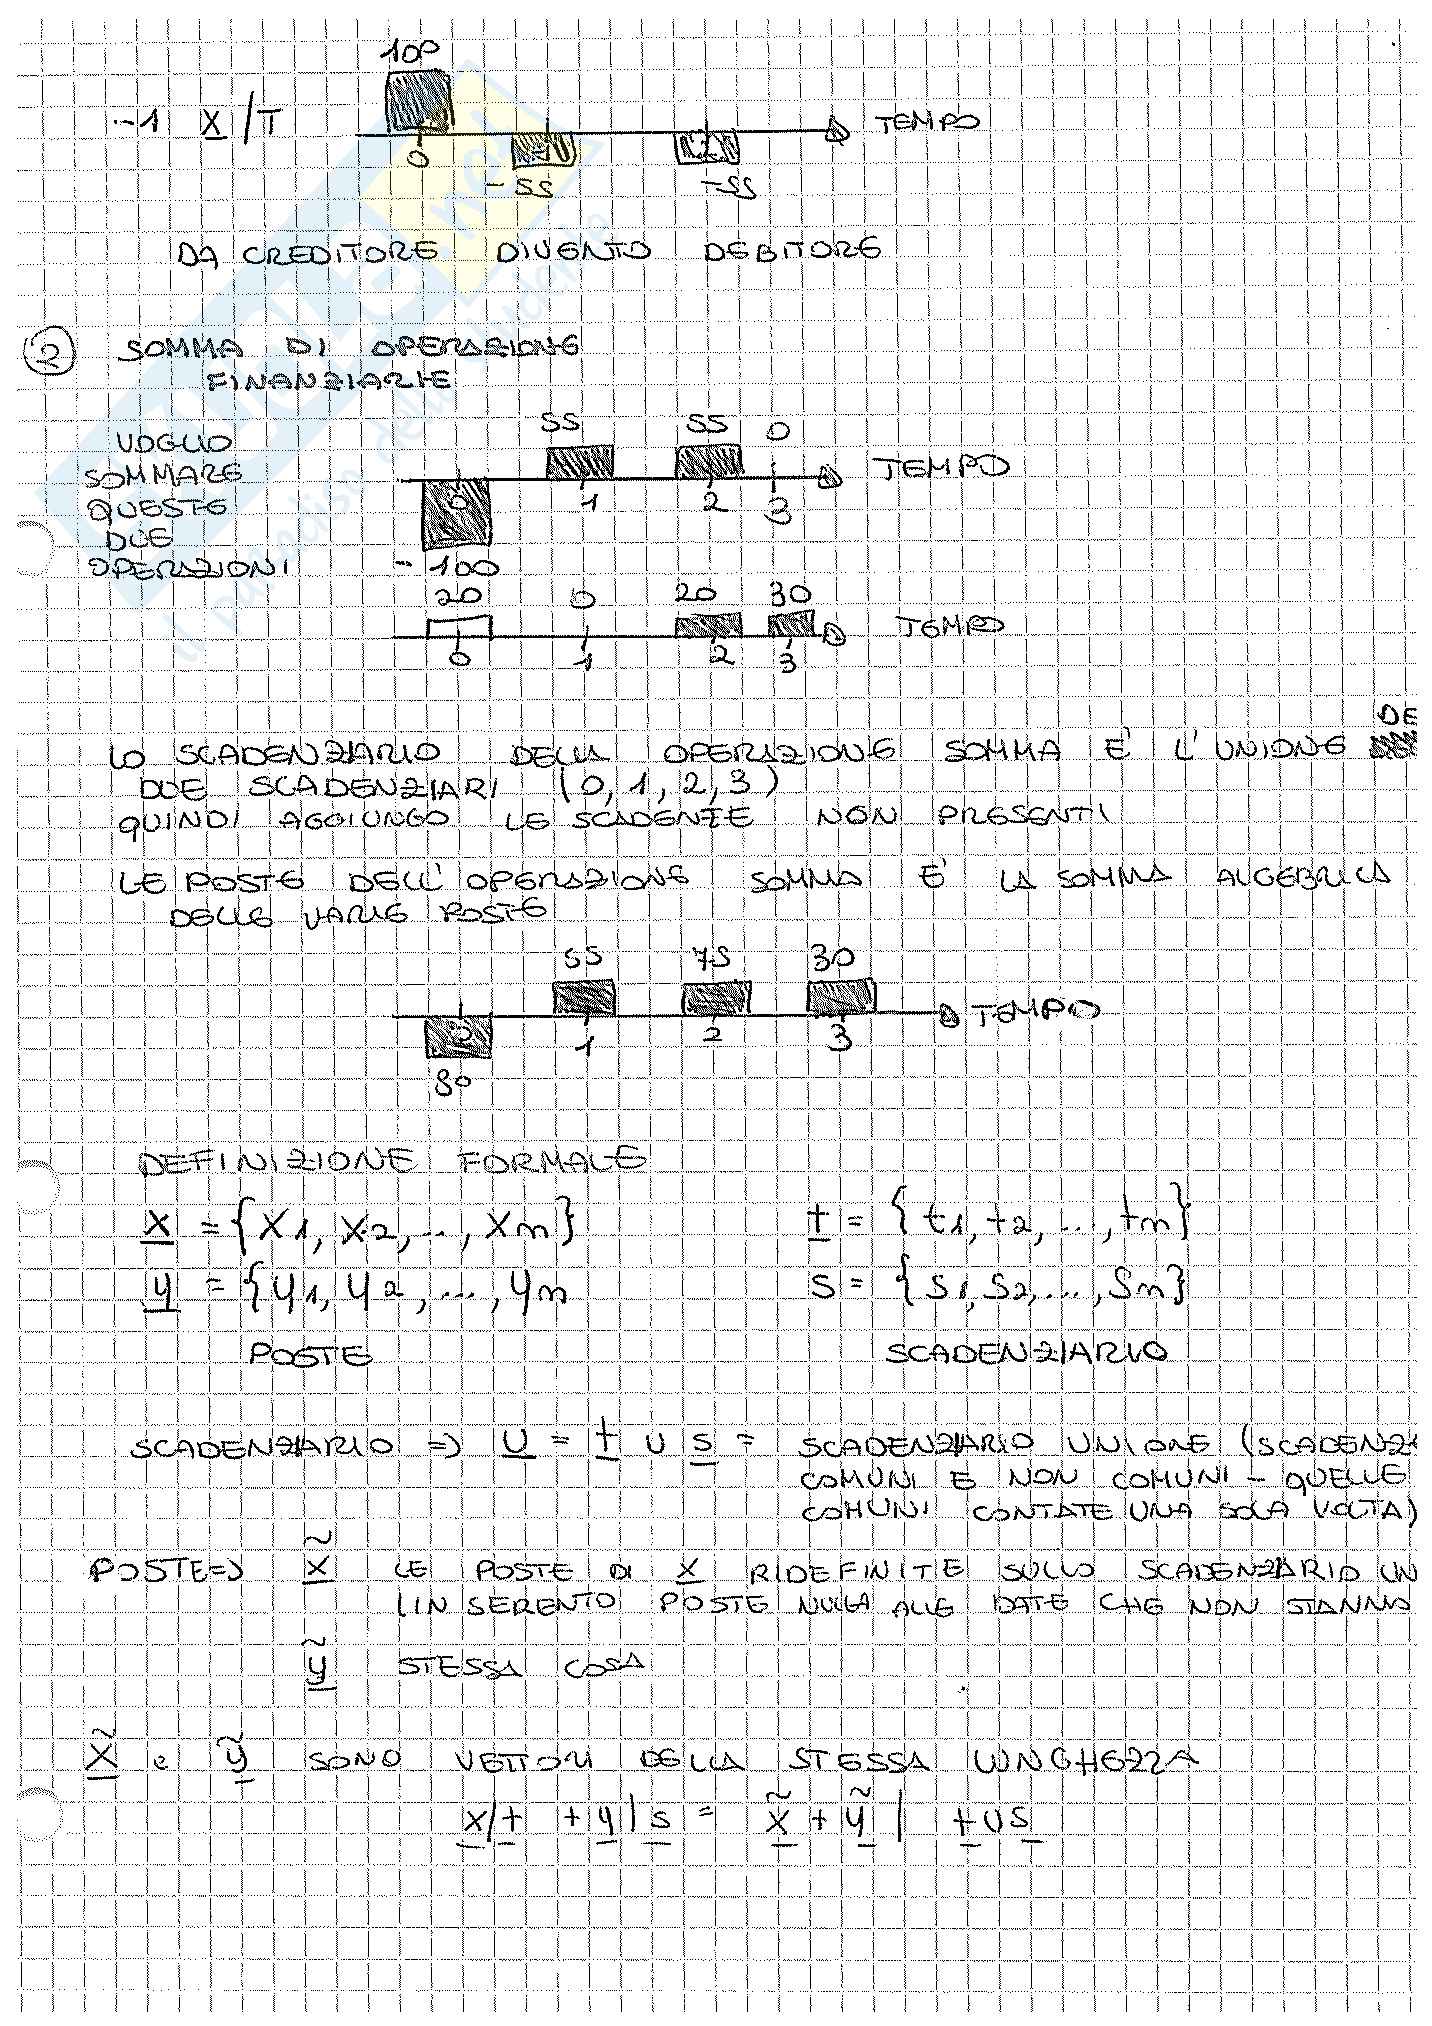 100
-1 X/T
TEMPO
0 1 2
-55 -55
DA CREDITORE DIVENTO DEBITORE
2 SOMMA DI OPERAZIONE
FINANZIARIE
VOGLIO
SOMMARE
QUESTE
DUE
OPERAZIONI
55 55 0
TEMPO
0 1 2 3
- 100
20 0 20 30
TEMPO
0 1 2 3
DE
LO SCADENZIARIO DELLA OPERAZIONE SOMMA E' L'UNIONE
DUE SCADENZIARI (0, 1, 2, 3)
QUINDI AGGIUNGO LE SCADENZE NON PRESENTI
LE POSTE DELL'OPERAZIONE SOMMA E' LA SOMMA ALGEBRICA
DELLE VARIE POSTE
55 75 30
TEMPO
0 1 2 3
80
DEFINIZIONE FORMALE
x = {x1, x2, ..., xn} t = {t1, t2, ..., tn}
y = {y1, y2, ..., yn s = {s1, s2, ..., sn}
POSTE SCADENZIARIO
SCADENZIARIO => u = t ∪ s = SCADENZIARIO UNIONE (SCADENZ
COMUNI E NON COMUNI - QUELLE
COMUNI CONTATE UNA SOLA VOLTA)
POSTE => x̃ LE POSTE DI x RIDEFINITE SULLO SCADENZIARIO UN
(IN SERENTO POSTE NULLA ALLE DATE CHE NON STANNO
ỹ STESSA COSA
x̃ e ỹ SONO VETTORI DELLA STESSA LUNGHEZZA
x/t + y/s = x̃ + ỹ / t ∪ s